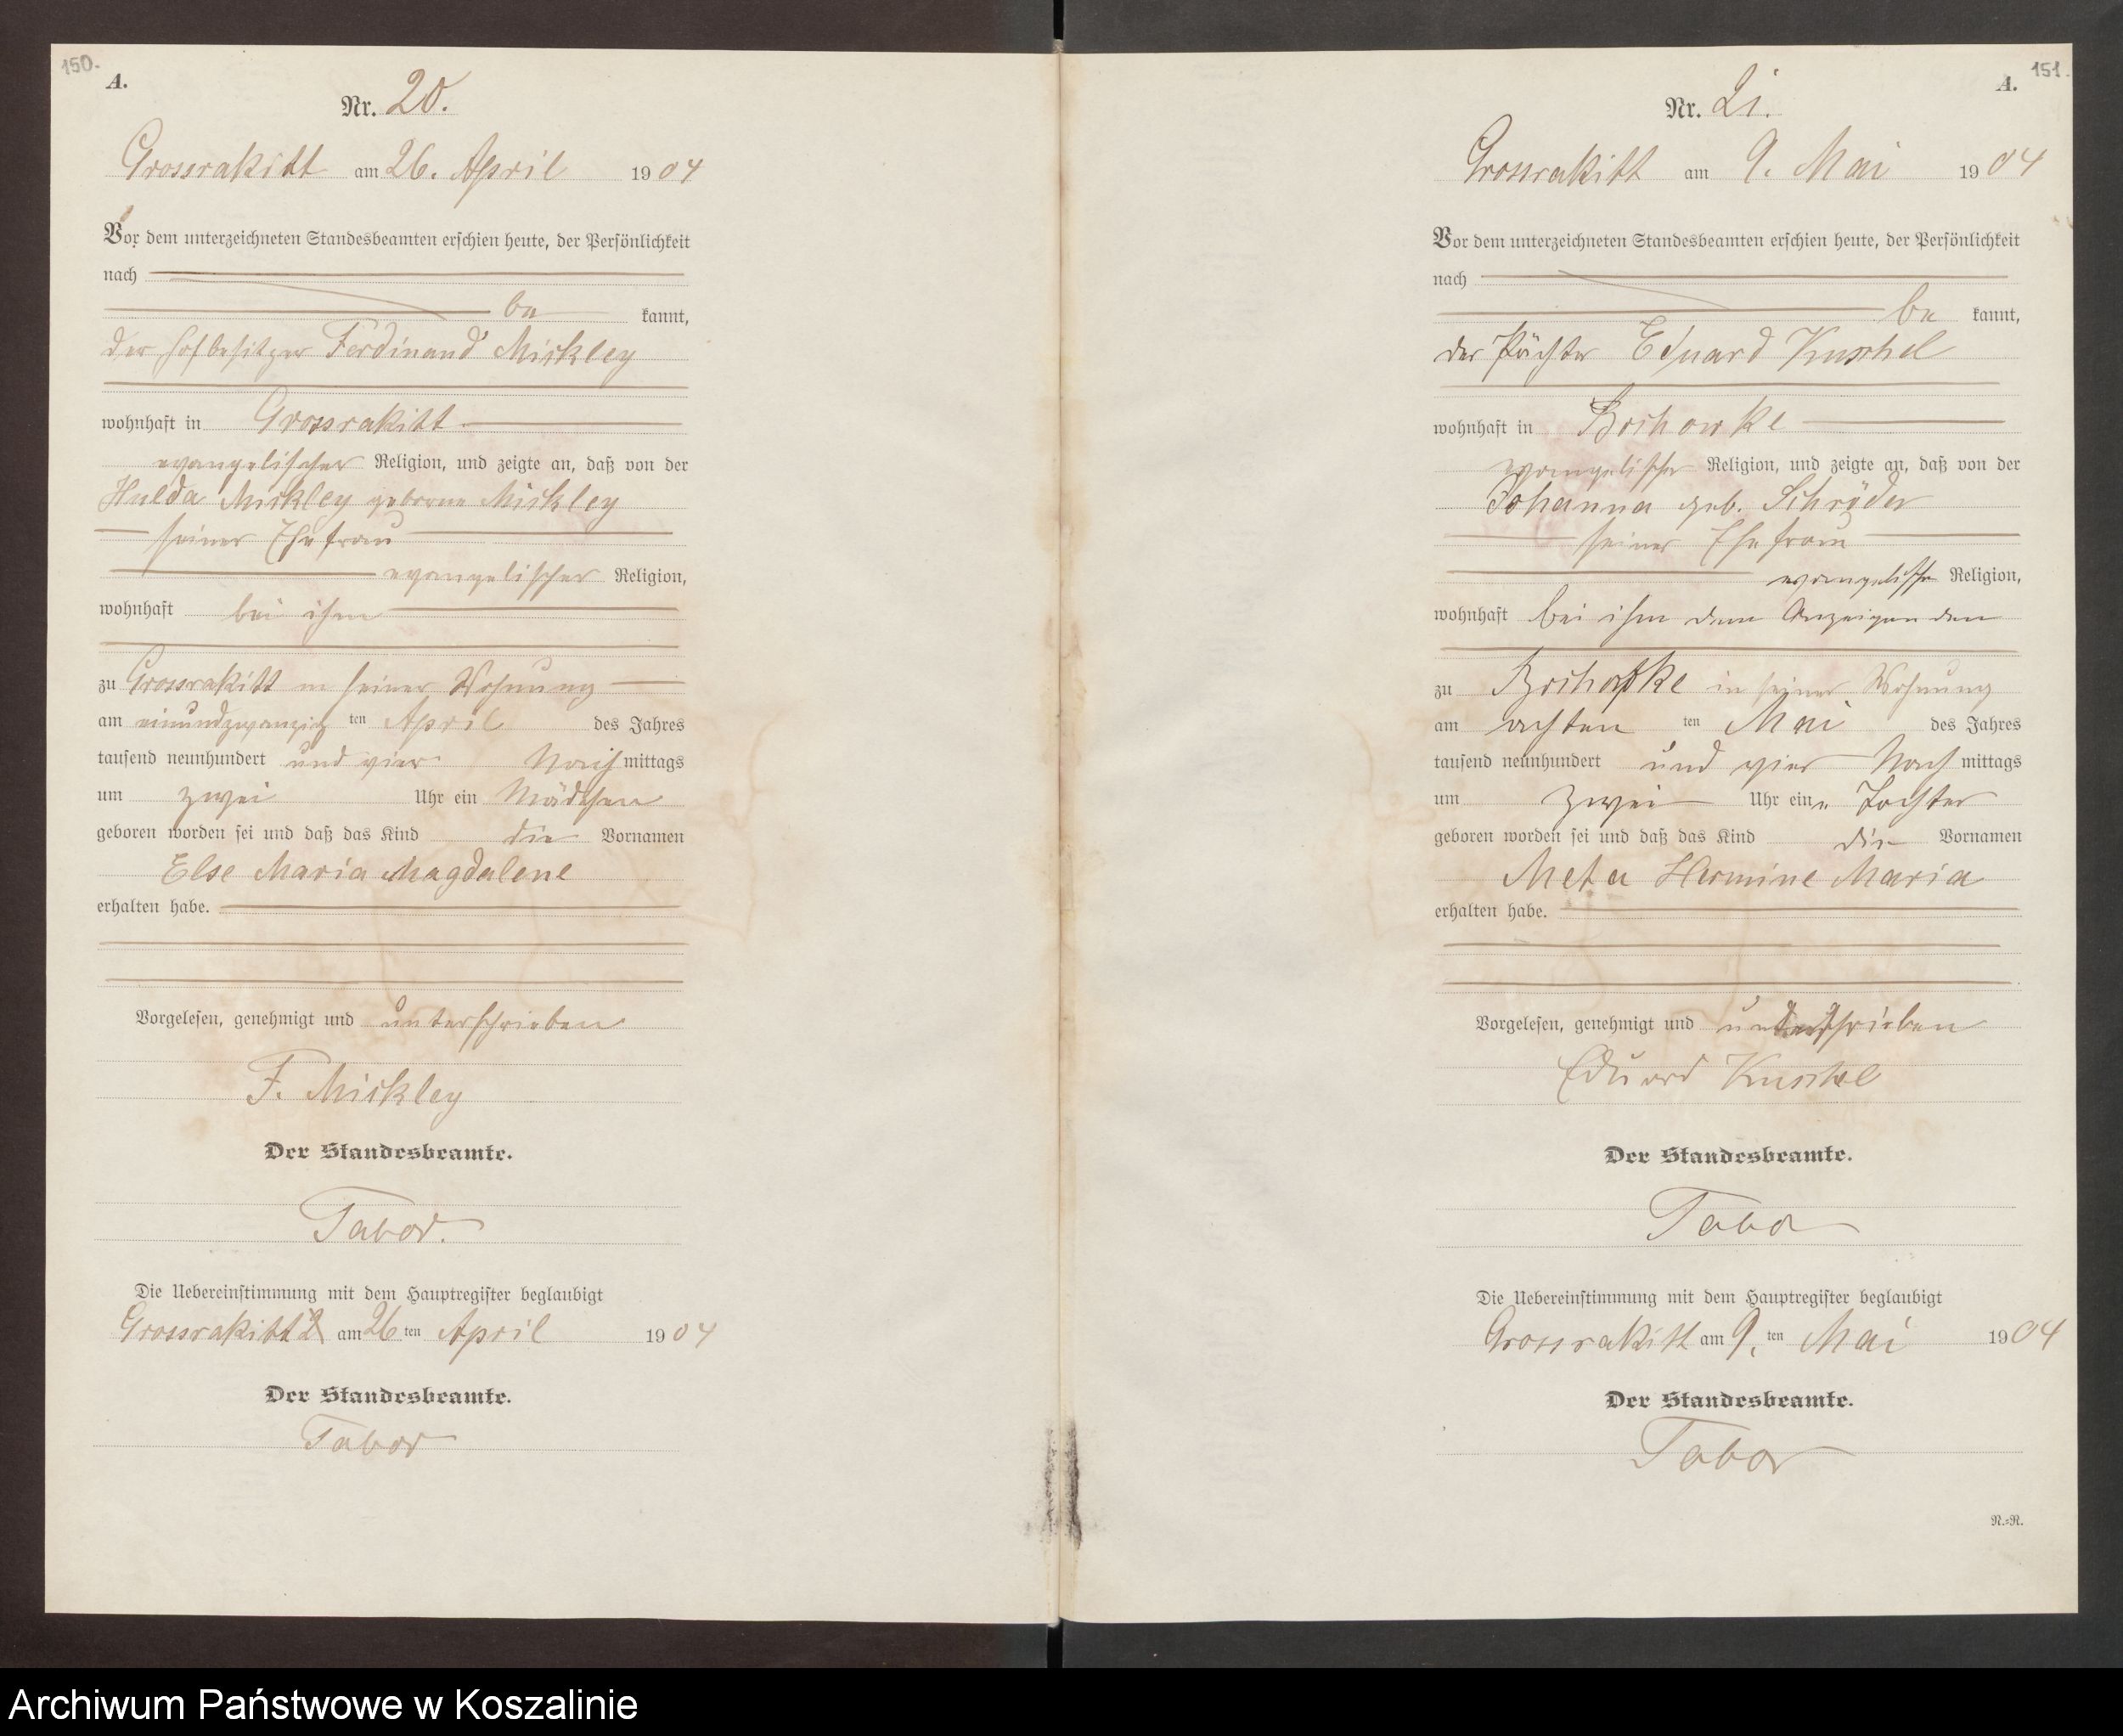 150.
A.
Nr. 20.
Grossrakitt am 26. April 1904
Vor dem unterzeichneten Standesbeamten erschien heute, der Persönlichkeit
nach
be kannt,
der Hofbesitzer Ferdinand Mickley
wohnhaft in Grossrakitt
evangelischer Religion, und zeigte an, daß von der
Hulda Mickley geborene Mickley
seiner Ehefrau
evangelischer Religion,
wohnhaft bei ihm
zu Grossrakitt in seiner Wohnung
am einundzwanzig ten April des Jahres
tausend neunhundert und vier Nach mittags
um zwei Uhr ein Mädchen
geboren worden sei und daß das Kind die Vornamen
Else Maria Magdalene
erhalten habe.
Vorgelesen, genehmigt und unterschrieben
F. Mickley
Der Standesbeamte.
Tabor.
Die Uebereinstimmung mit dem Hauptregister beglaubigt
Grossrakitt am 26 ten April 1904
Der Standesbeamte.
Tabor
151.
A.
Nr. 21.
Grossrakitt am 9. Mai 1904
Vor dem unterzeichneten Standesbeamten erschien heute, der Persönlichkeit
nach
be kannt,
der Pächter Eduard Kuschel
wohnhaft in
evangelischer Religion, und zeigte an, daß von der
Johanna geb. Schröder
seiner Ehefrau
evangelischer Religion,
wohnhaft bei ihm dem Anzeigenden
zu in seiner Wohnung
am achten ten Mai des Jahres
tausend neunhundert und vier Nach mittags
um zwei Uhr eine Tochter
geboren worden sei und daß das Kind die Vornamen
Meta Hermine Maria
erhalten habe.
Vorgelesen, genehmigt und unterschrieben
Eduard Kuschel
Der Standesbeamte.
Tabor
Die Uebereinstimmung mit dem Hauptregister beglaubigt
Grossrakitt am 9. ten Mai 1904
Der Standesbeamte.
Tabor
N.=N.
Archiwum Państwowe w Koszalinie